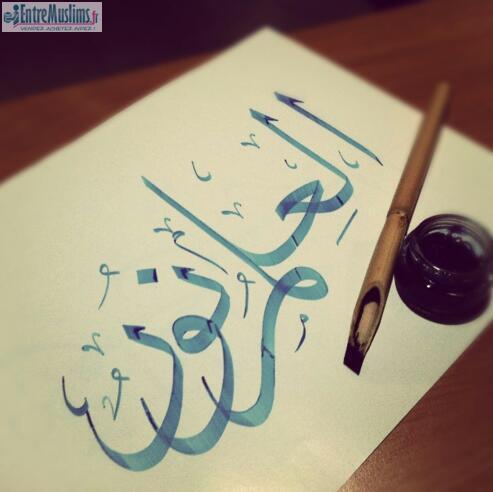 @EntreMuslims.fr
VENDEZ ACHETEZ AVEC !
العلم نور